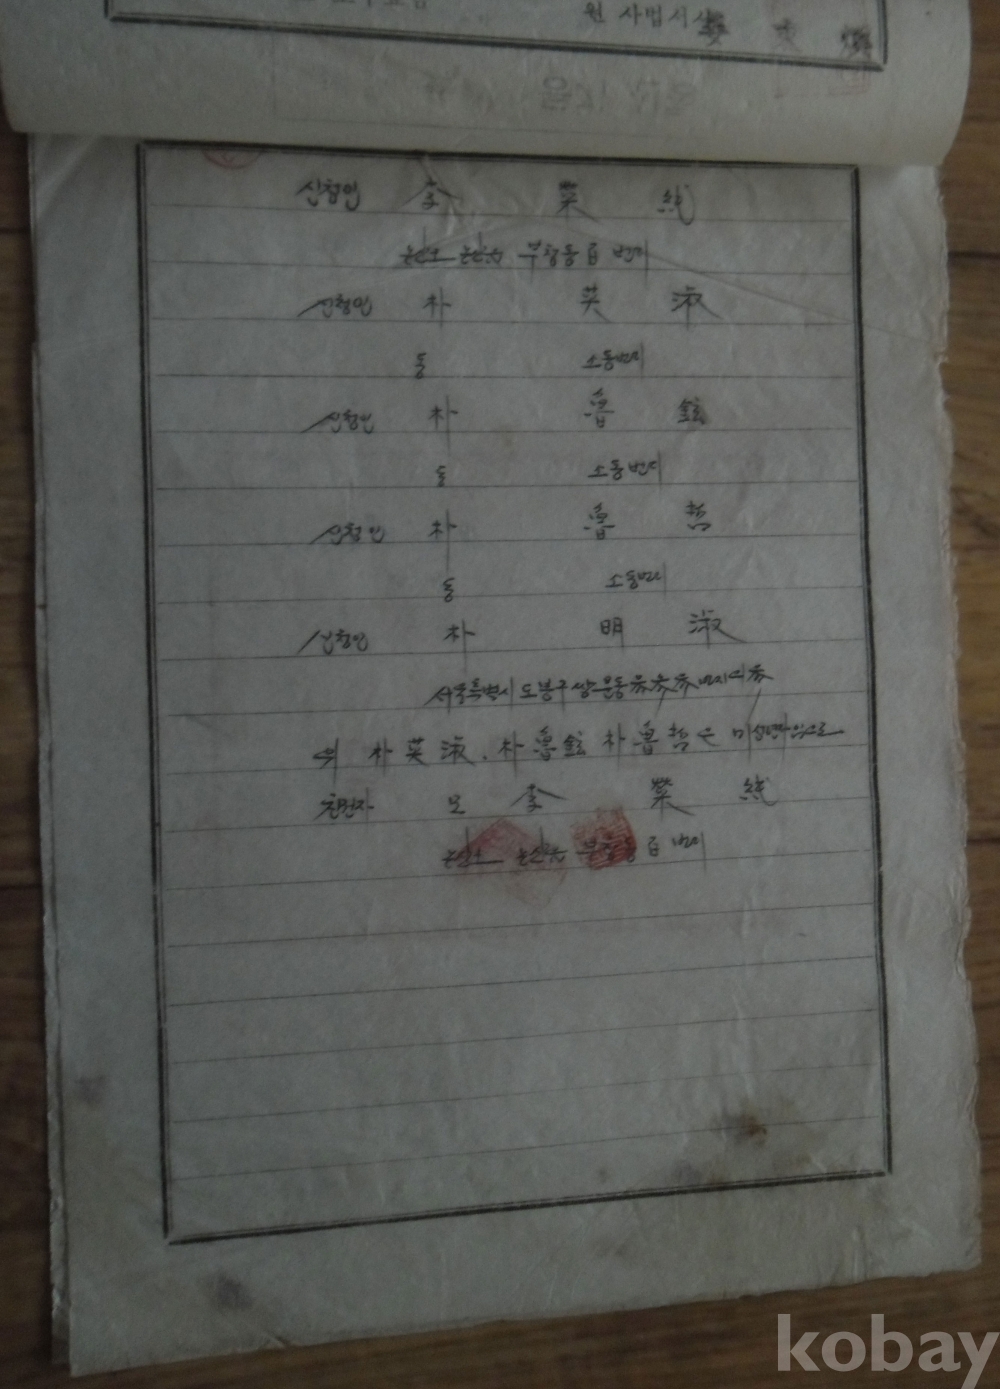 원 사법서사
신청인 李 榮 純
논산군 논산읍 부창동 번지
신청인 朴 英 淑
동 소동번지
신청인 朴 魯 鉉
동 소동번지
신청인 朴 魯 哲
동 소동번지
신청인 朴 明 淑
서울특별시 도봉구 쌍문동 参参参번지의 参
위 朴英淑. 朴魯鉉 朴魯哲은 미성년자임으로
친권자 모 李 榮 純
논산군 논산읍 부창동 번지
kobay